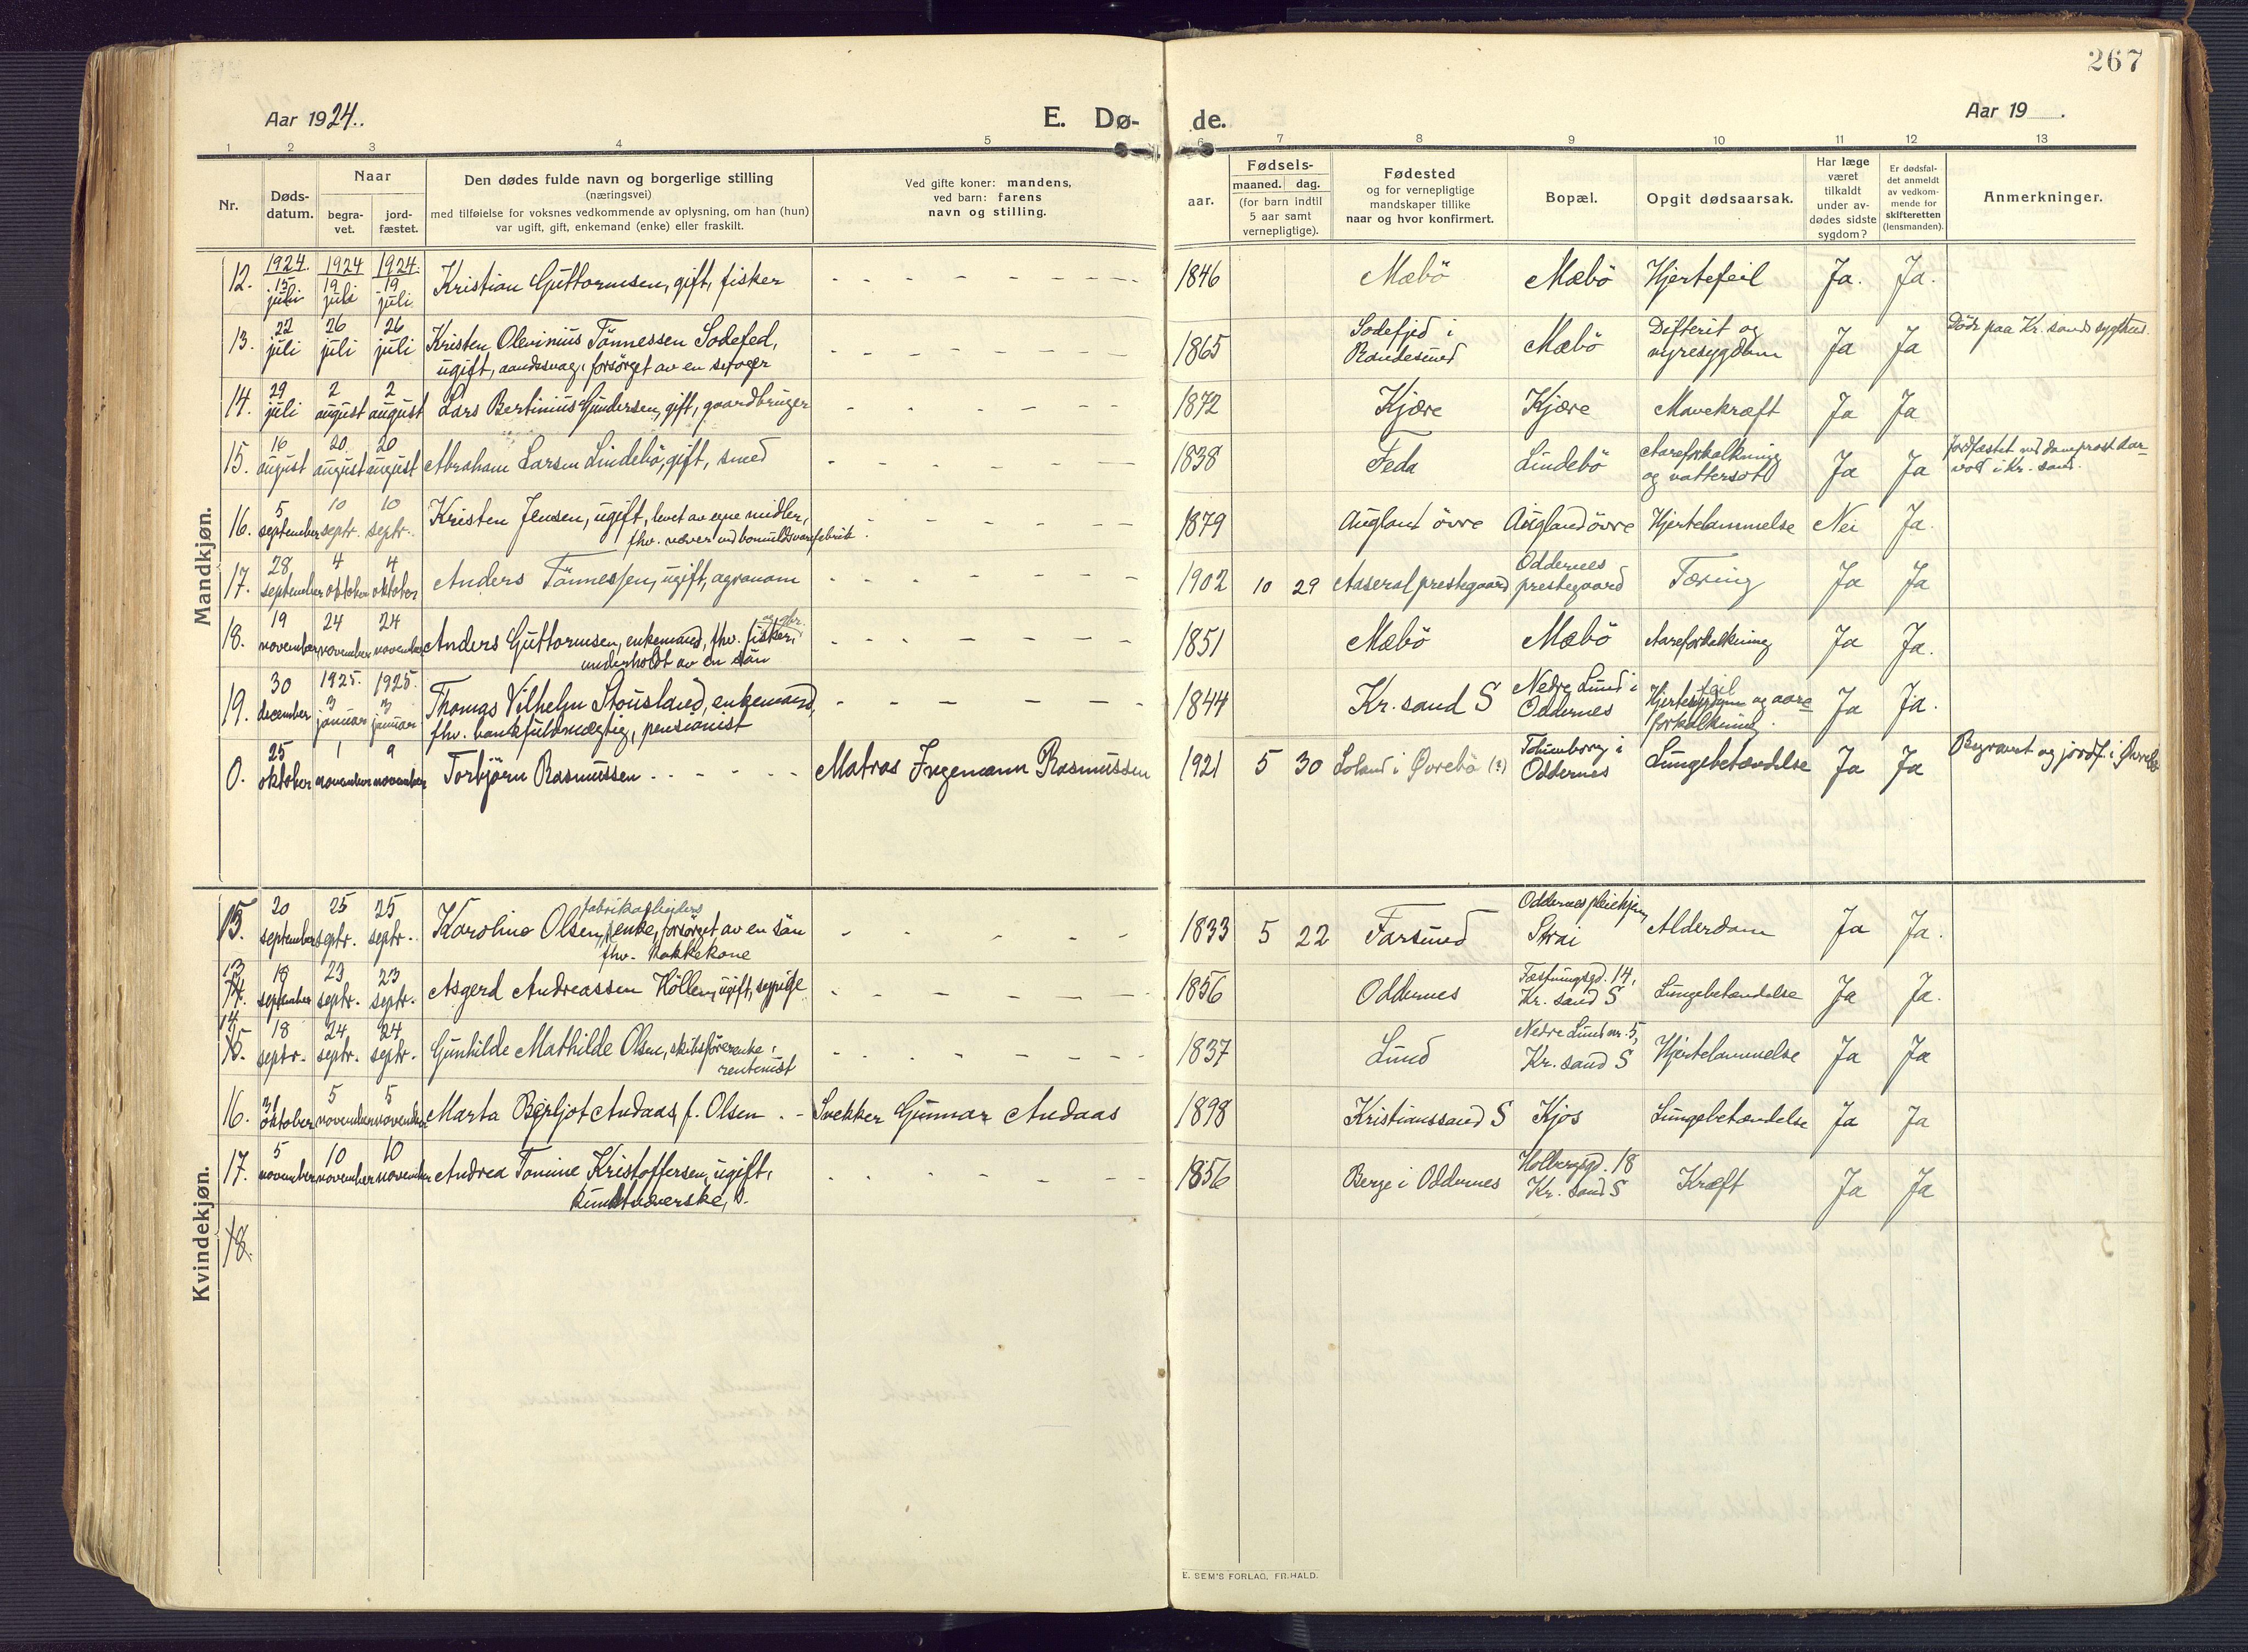 267
Aar 1924.
E. Dø-
de.
Aar 19
1 2 3 4 5 6 7 8 9 10 11 12 13
Nr.
Døds-
datum.
Naar
begra-
vet.
jord-
fæstet.
Den dødes fulde navn og borgerlige stilling
(næringsvei)
med tilføielse for voksnes vedkommende av oplysning, om han (hun)
var ugift, gift, enkemand (enke) eller fraskilt.
Ved gifte koner: mandens,
ved barn: farens
navn og stilling.
Fødsels-
aar.
maaned. dag.
(for barn indtil
5 aar samt
vernepligtige).
Fødested
og for vernepligtige
mandskaper tillike
naar og hvor konfirmert.
Bopæl.
Opgit dødsaarsak.
Har læge
været
tilkaldt
under av-
dødes sidste
sygdom?
Er dødsfal-
det anmeldt
av vedkom-
mende for
skifteretten
(lensmanden).
Anmerkninger.
Mandkjøn.
12. 1924 15 juli 1924 19 juli 1924 19 juli Kristian Guttormsen, gift, fisker 1846 Mæbö Mæbö Hjertefeil Ja. Ja.
13. 22 juli 26 juli 26 juli Kristen Olevinius Tönnessen Sodefed,
ugift, aandssvag, forsörget av en svoger 1865 Sodefjed i
Randesund Mæbö Difterit og
nyresygdom Ja Ja Död paa Kr.sands sygehus.
14. 29 juli 2 august 2 august Lars Bertinius Gundersen, gift, gaardbruger 1872 Kjære Kjære Mavekræft Ja Ja
15. 16 august 20 august 20 august Abraham Larsen Lindebö, gift, smed 1838 Feda Lindebö Aareforkalkning
og vattersot Ja Ja Jordfæstet ved domprost Aar-
vold i Kr.sand.
16. 5 september 10 septr. 10 septr. Kristen Jensen, ugift, levet av egne midler,
fhv. væver ved bomuldsvarefabrik. 1879 Augland övre Augland övre Hjertelammelse Nei Ja.
17. 28 september 4 oktober 4 oktober Anders Tönnessen, ugift, agronom 1902 10 29 Aaseral prestegaard Oddernes
prestegaard Tæring Ja Ja
18. 19 november 24 november 24 november Anders Guttormsen, enkemand, fhv. fisker og gbr.
underholdt av en sön 1851 Mæbö Mæbö Aareforkalkning Ja Ja.
19. 30 december 1925. 3 januar 1925. 3 januar Thomas Vilhelm Stousland, enkemand,
fhv. bankfuldmægtig, pensionist 1844 Kr.sand S Nedre Lund i
Oddernes Hjertefeil og aare-
forkalkning. Ja Ja.
0. 25 oktober 1 november 9 november Torbjörn Rasmussen Matros Ingemann Rasmussen 1921 5 30 Loland i Øvrebö (?) i
Oddernes Lungebetændelse Ja Ja Begravet og jordf. i Øvrebö
Kvindekjøn.
15. 20 september 25 septr. 25 septr. Karoline Olsen, fabrikarbeiders enke, forsörget av en sön
fhv. kokkekone 1833 5 22 Farsund Oddernes pleiehjem,
Strai Alderdom Ja Ja.
13 14. 18 september 23 septr. 23 septr. Asgerd Andreassen Höllen, ugift, sypige 1856 Oddernes Fæstningsgd. 14,
Kr.sand S Lungebetændelse Ja Ja.
14 15. 18 septr. 24 septr. 24 septr. Gunhilde Mathilde Olsen, skibsförerenke,
rentenist 1837 Lund Nedre Lund nr. 5,
Kr.sand S Hjertelammelse Ja Ja
16. 31 oktober 5 november 5 november Marta Bergljot Andaas, f. Olsen Snekker Gunnar Andaas 1898 Kristianssand S Kjos Lungebetændelse Ja Ja
17. 5 november 10 november 10 november Andrea Tomine Kristoffersen, ugift,
kunstvæverske 1856 Berge i Oddernes Holbergsgd. 18
Kr.sand S Kræft Ja Ja
18.
E. SEM'S FORLAG, FR.HALD.